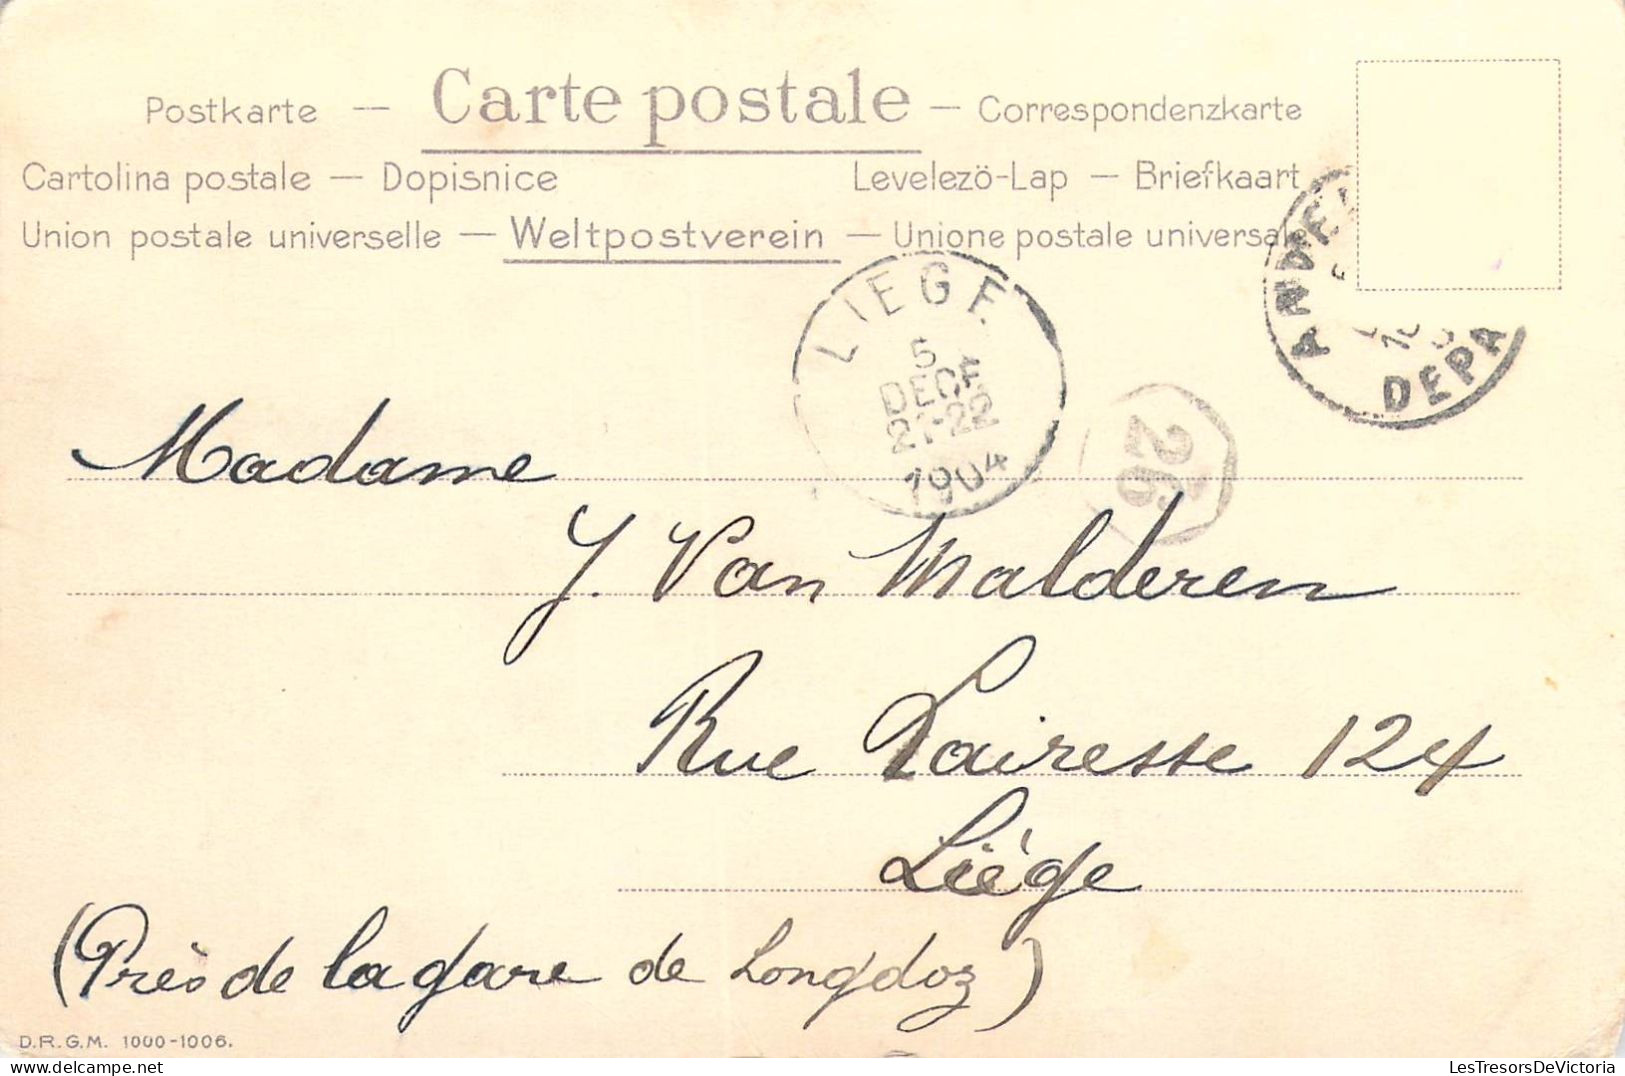 Postkarte — Carte postale — Correspondenzkarte
Cartolina postale — Dopisnice Levelező-Lap — Briefkaart
Union postale universelle — Weltpostverein — Unione postale universale
ANDE
DEPA
LIEGE
5
DEC
21-22
1904
26
Madame
J. Van Malderen
Rue Lairesse 124
Liège
(Près de la gare de Longdoz)
D.R.G.M. 1000-1006.
LesTresorsDeVictoria